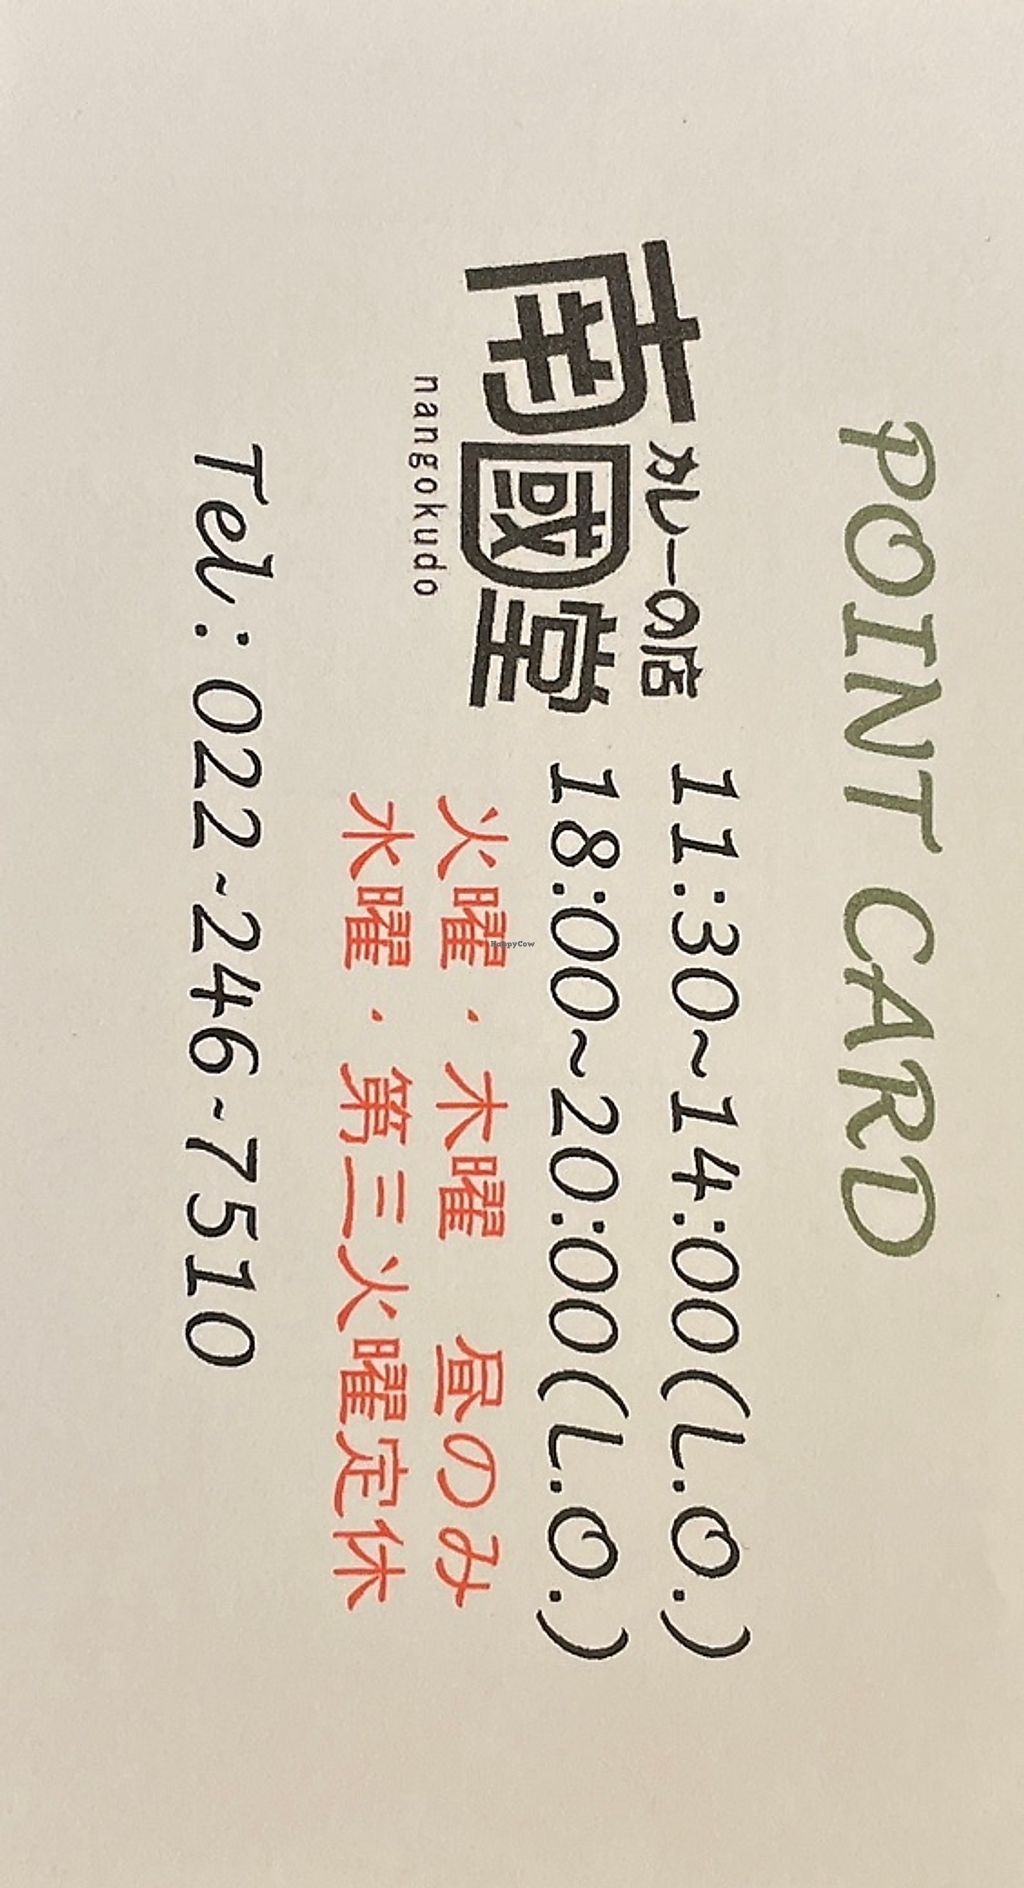 POINT CARD
カレーの店
南國堂
nangokudo
11:30~14:00(L.O.)
18:00~20:00(L.O.)
火曜・木曜 昼のみ
水曜・第三火曜定休
Tel:022-246-7510
HappyCow